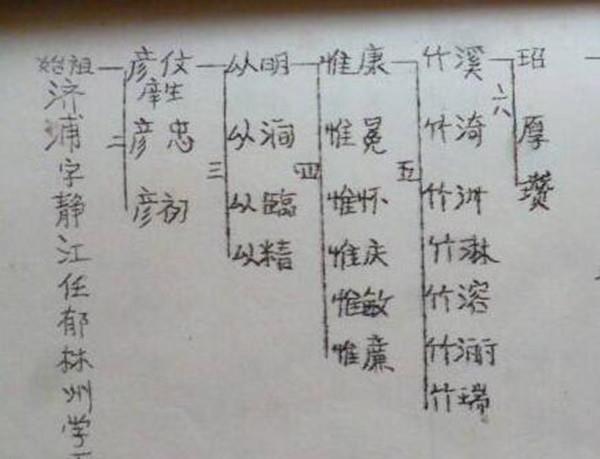 始祖济浦字静江任郁林州学
二
彦伩
庠生
彦忠
彦初
三
从明
从洵
从臨
从精
四
惟康
惟冕
惟怀
惟庆
惟敏
惟廉
五
竹溪
竹漪
竹洲
竹淋
竹溶
竹瑞
六
玿
厚
瓒